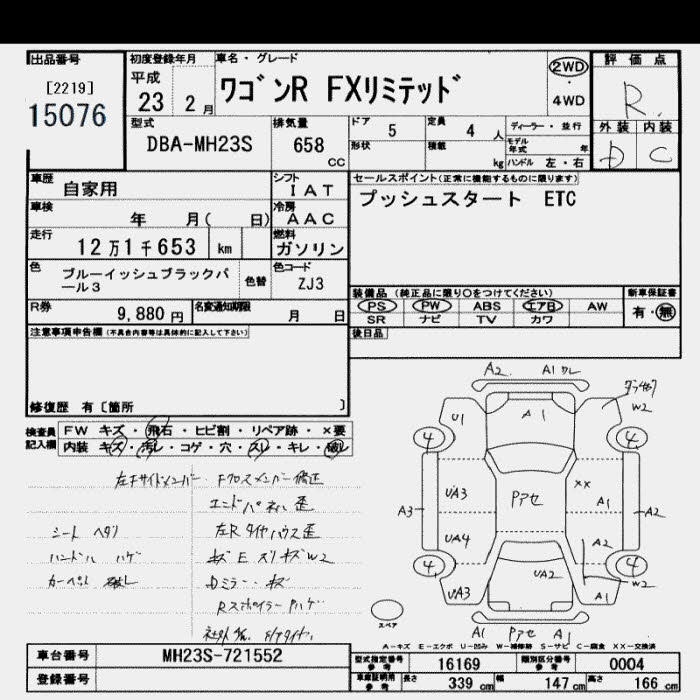 出品番号
[2219]
15076
初度登録年月
平成
23 2月
車名・グレード
ワゴンR FXリミテッド
2WD
・
4WD
評価点
R
外装 内装
D C
型式
DBA-MH23S
排気量
658
CC
ドア 5
形状
定員 4 人
積載 kg
ディーラー・並行
モデル年式 年
ハンドル 左・右
車歴 自家用
シフト
IAT
車検
年 月( 日)
冷房
AAC
走行
12万1千653 km
燃料
ガソリン
色 ブルーイッシュブラックパール3
色替
色コード
ZJ3
R券
9,880円
名変通知期限
月 日
セールスポイント(正常に機能するものに限ります)
プッシュスタート ETC
装備品 (純正品に限り○をつけてください)
PS PW ABS エアB AW
SR ナビ TV カワ
新車保証書
有・無
後日品
注意事項申告欄(不具合内容等は具体的に記入して下さい)
修復歴 有〔箇所 〕
検査員
記入欄
FW キズ・飛石・ヒビ割・リペア跡・×要
内装 キズ・汚レ・コゲ・穴・スレ・キレ・破レ
左Fサイドメンバー Fクロスメンバー修正
エンドパネル歪
シートヘタリ
左Rタイヤハウス歪
ハンドル ハゲ
カーペット 破レ
Dミラー キズ
Rスポイラー Pハゲ
A2 A1 ワレ
W2
U1
A1
4
4
UA3
Pアセ
××
A3
A1
A2
UA4
A2
4
4
UA2
W2
UA3
A1
スペア
A1 Pアセ A1
A-キズ E-エクボ U-凹み W-補修跡 S-サビ C-腐食 XX-交換済
車台番号
MH23S-721552
登録番号
型式指定番号
参考
16169
類別区分番号
参考
0004
車庫証明用
参考
長さ 339 cm
幅 147 cm
高さ 166 cm